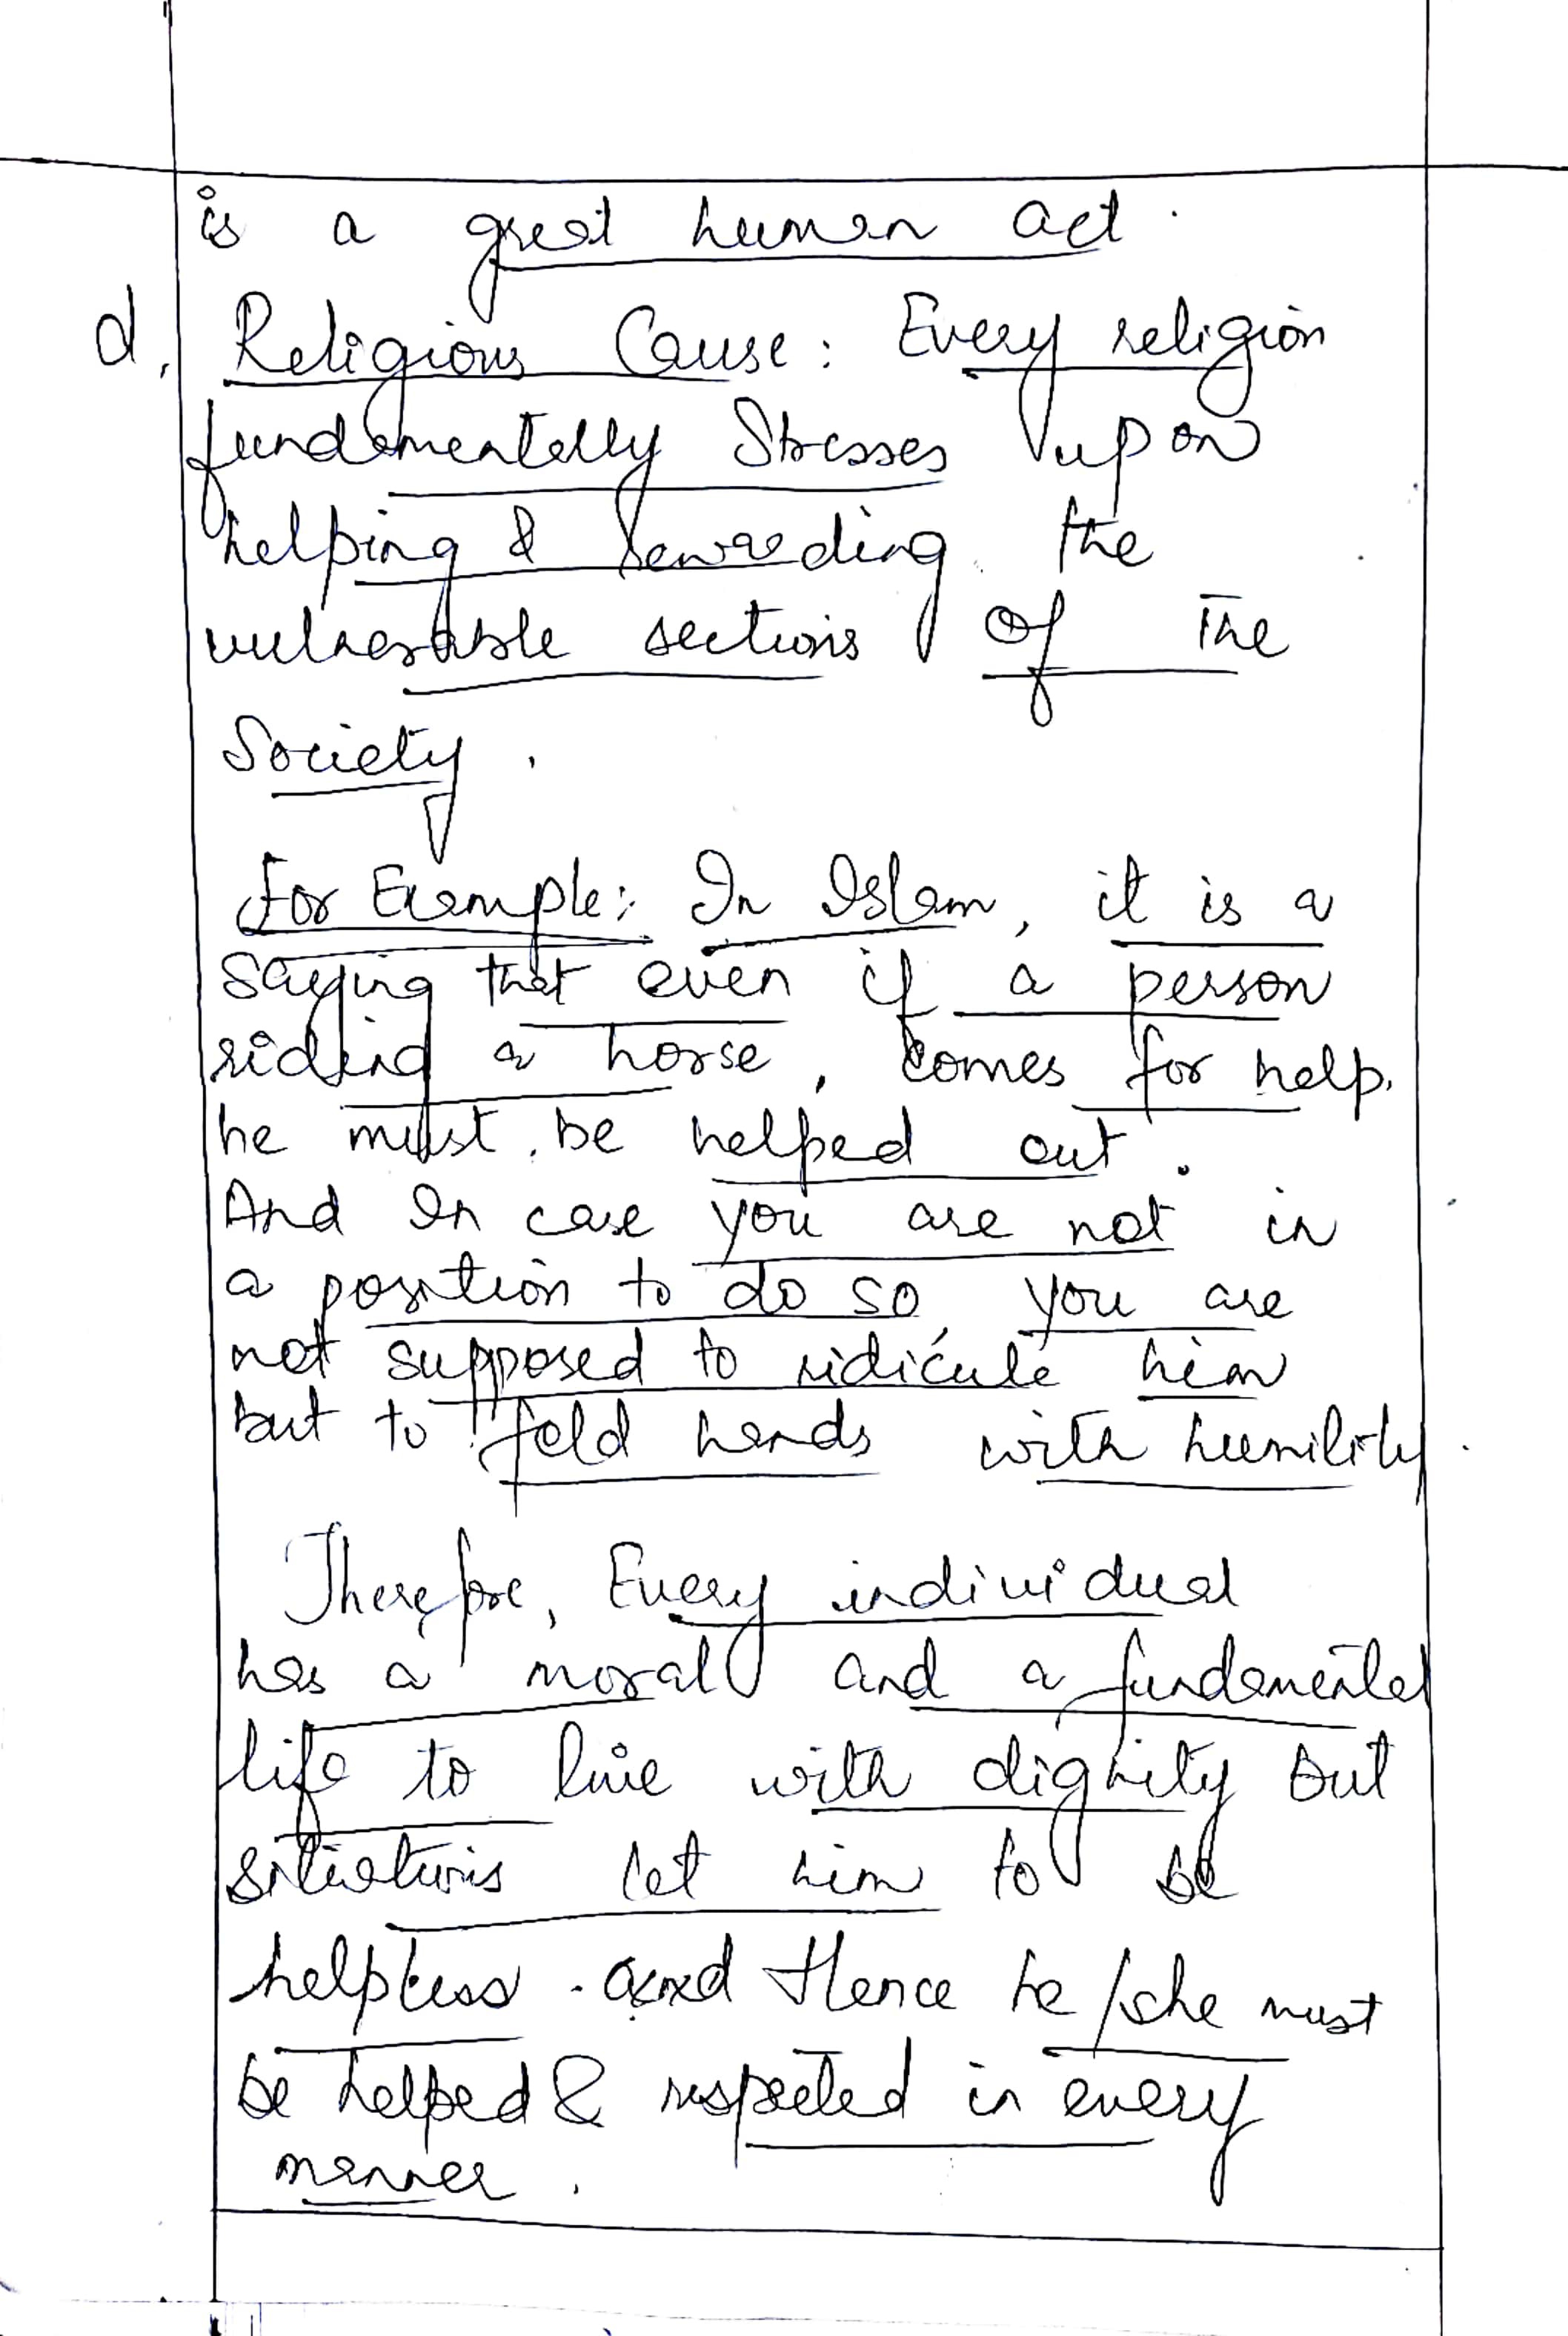 is a great human act.
d. Religious Cause: Every religion
fundamentally stresses upon
helping & rewarding the
vulnerable sections of the
Society.
For Example: In Islam, it is a
saying that even if a person
riding a horse, comes for help.
he must be helped out.
And In case you are not in
a position to do so, you are
not supposed to ridicule him
but to fold hands with humility.
Therefore, Every individual
has a moral and a fundamental
life to live with dignity but
situations let him to be
helpless. and Hence he/she must
be helped & respected in every
manner.